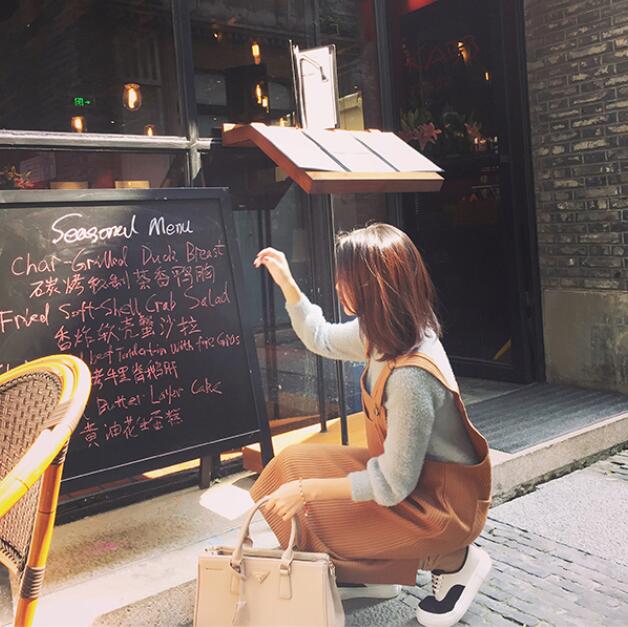 Seasonal Menu
Char-Grilled Duck Breast
碳烤秘制茶香鸭胸
Fried Soft-Shell Crab Salad
香炸软壳蟹沙拉
Tenderloin with foie Gras
牛里脊鹅肝
Butter Layer Cake
黄油花生蛋糕